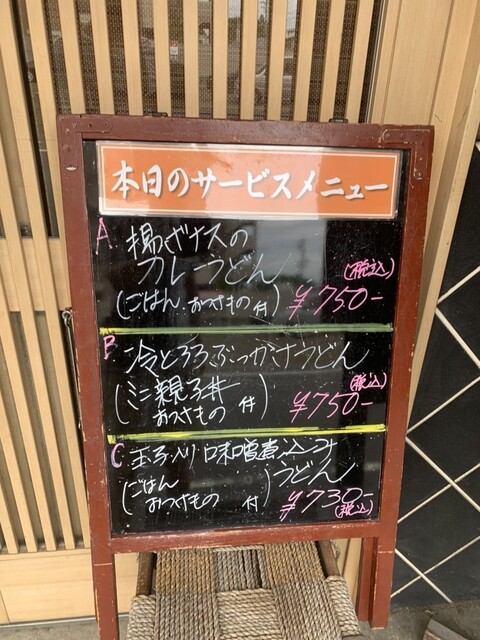 本日のサービスメニュー
A 揚げナスの
カレーうどん (税込)
(ごはん、おつけもの 付) ¥750-
B 冷とろろぶっかけうどん (税込)
(ミニ親子丼
おつけもの 付) ¥750-
C 玉子入り味噌煮込み
うどん
(ごはん
おつけもの 付) ¥730-
(税込)